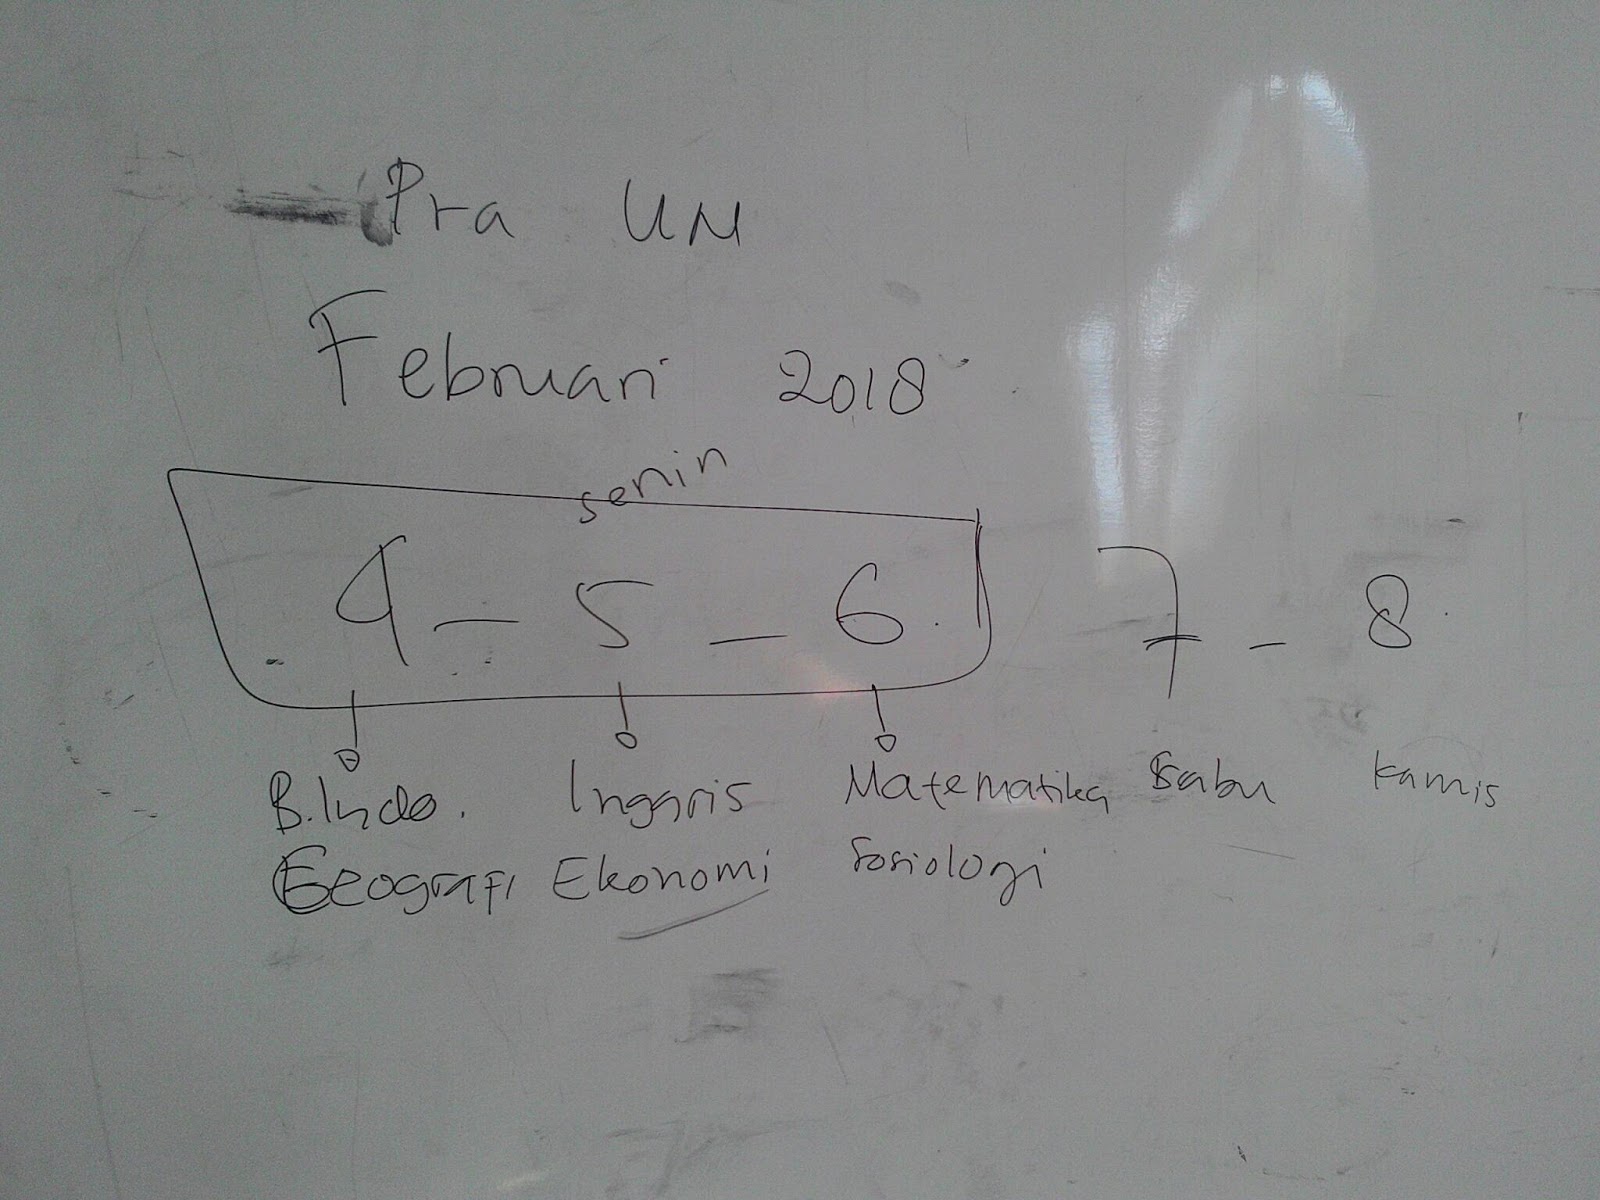 Pra UN
Februari 2018
senin
4 - 5 - 6. 7 - 8
B.Indo. Inggris Matematika Sabu Kamis
Geografi Ekonomi Sosiologi